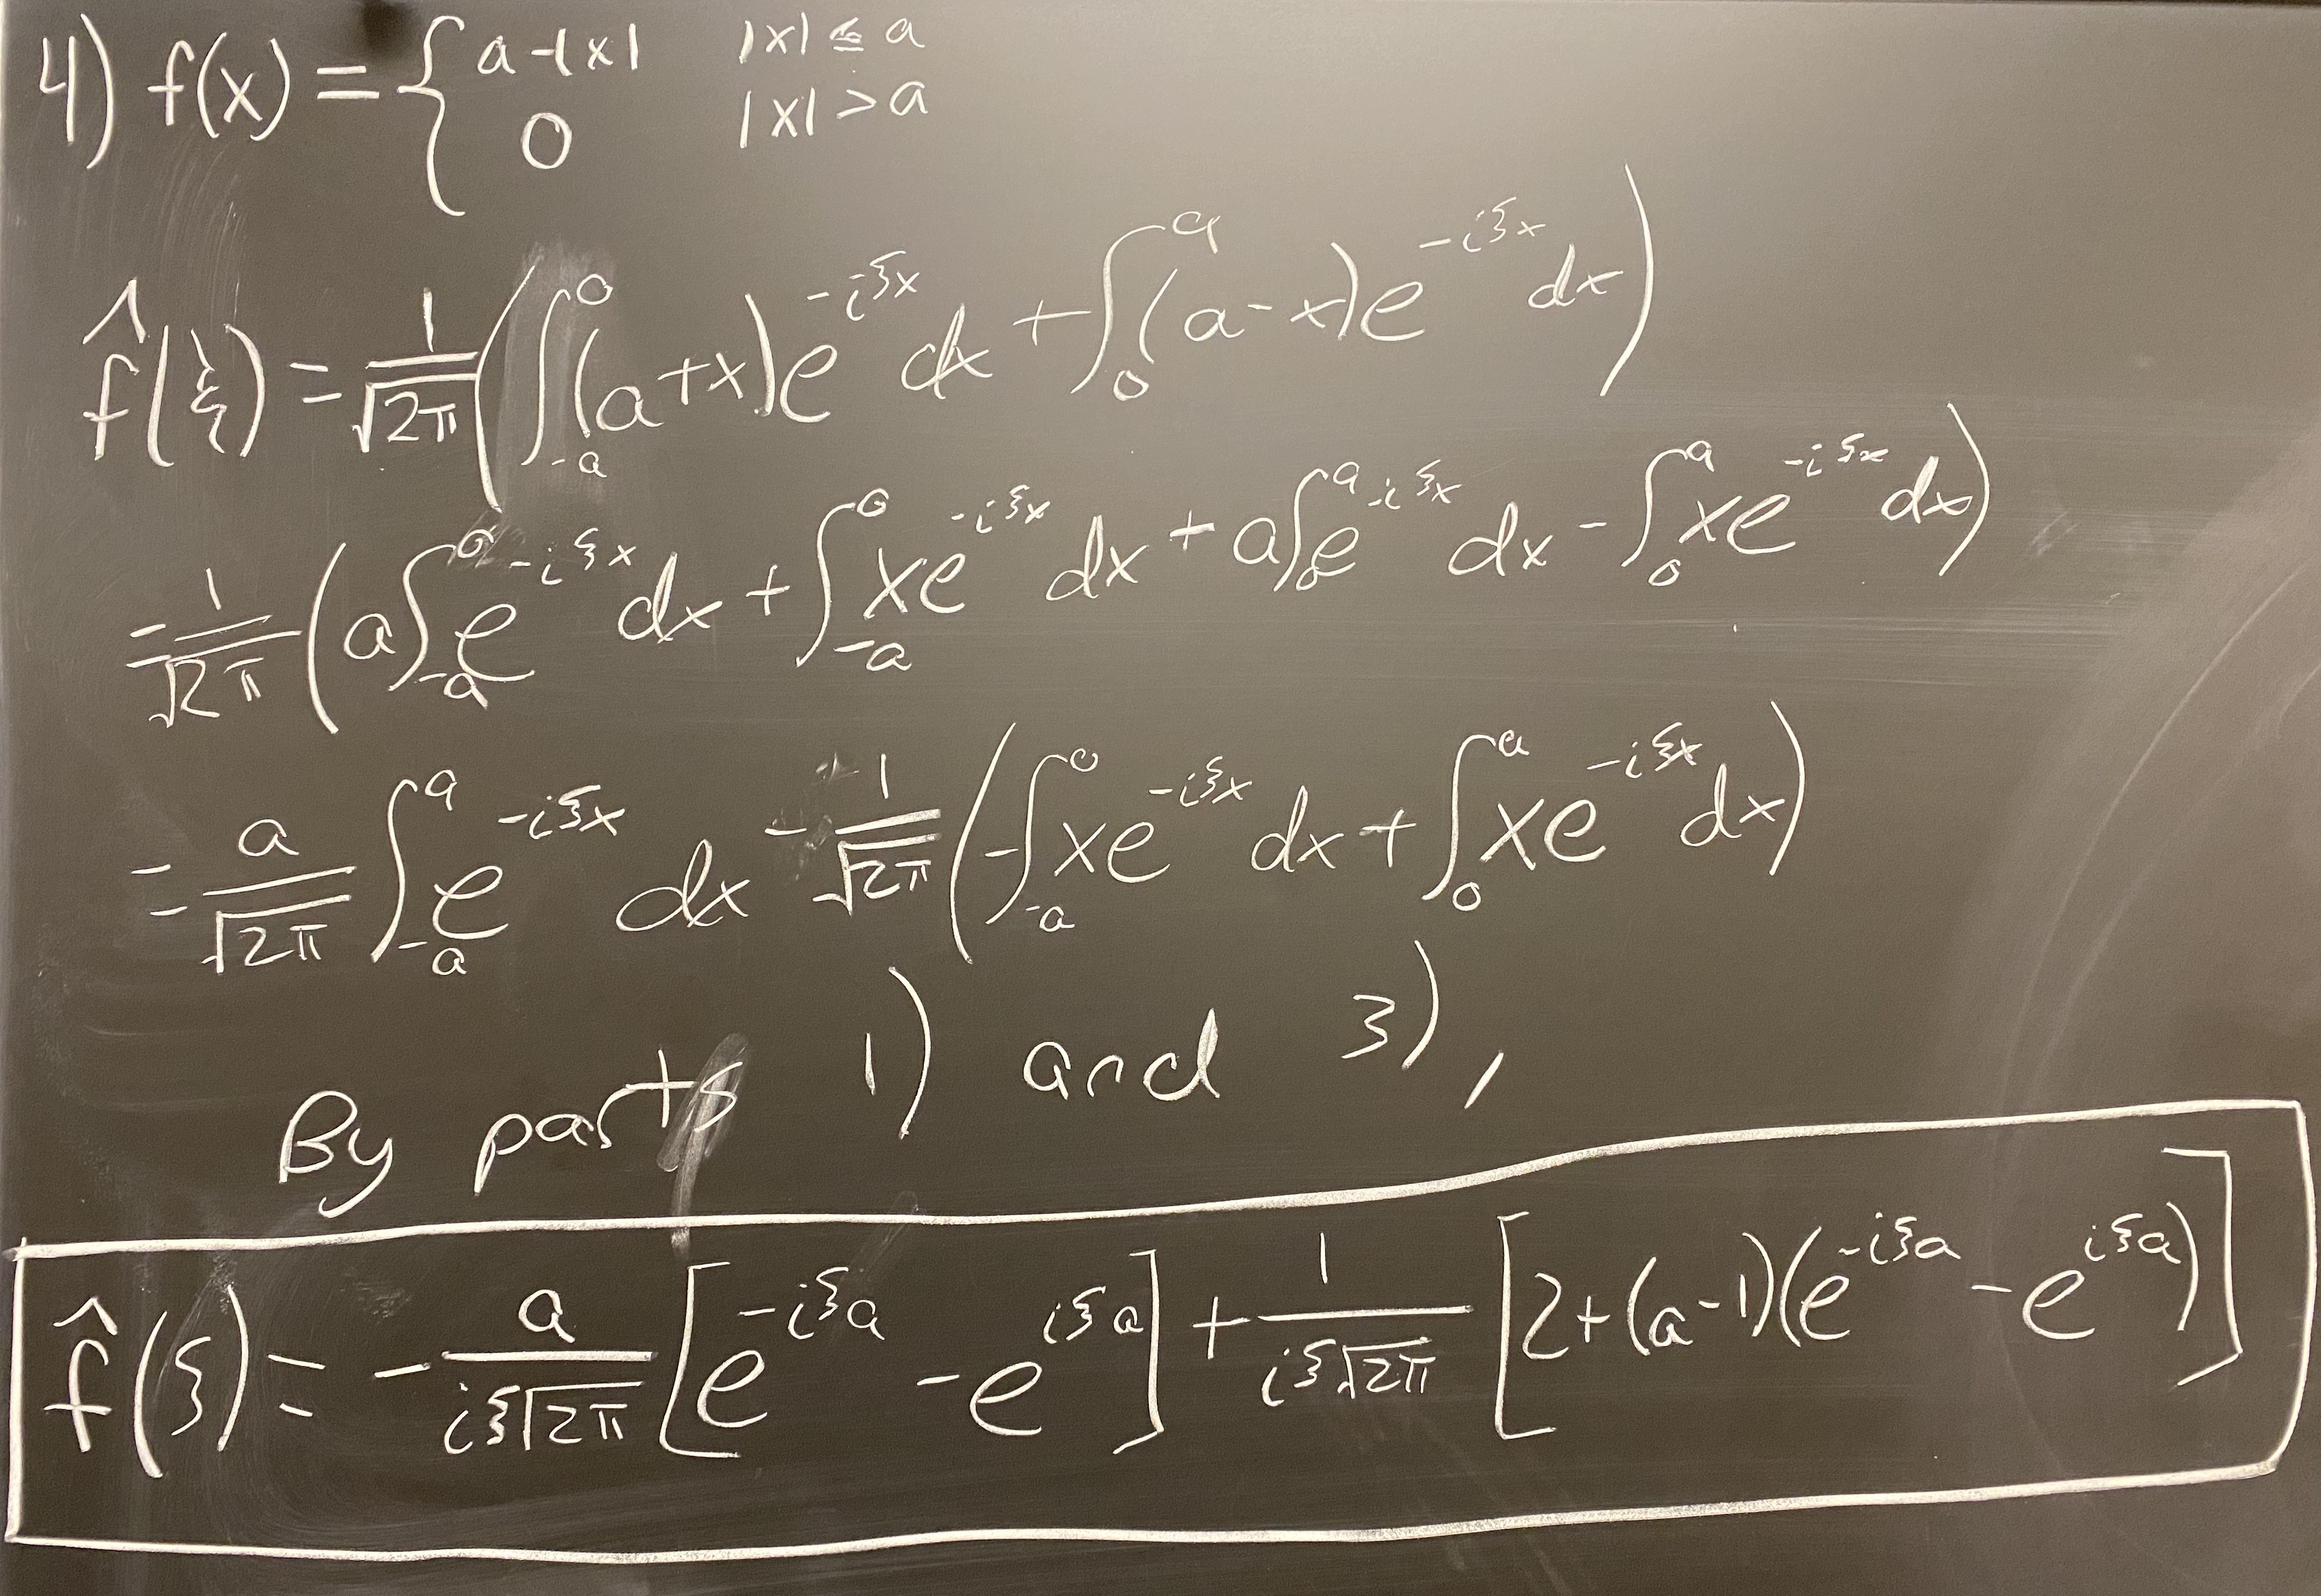 4) f(x) = { a-|x|   |x| ≤ a
0   |x| > a
f̂(ξ) = 1/√2π ( ∫_{-a}^{0} (a+x)e^{-iξx} dx + ∫_{0}^{a} (a-x)e^{-iξx} dx )
= 1/√2π ( a∫_{-a}^{0} e^{-iξx} dx + ∫_{-a}^{0} xe^{-iξx} dx + a∫_{0}^{a} e^{-iξx} dx - ∫_{0}^{a} xe^{-iξx} dx )
= a/√2π ∫_{-a}^{a} e^{-iξx} dx - 1/√2π ( -∫_{-a}^{0} xe^{-iξx} dx + ∫_{0}^{a} xe^{-iξx} dx )
By parts 1) and 3),
f̂(ξ) = - a/(iξ√2π) [ e^{-iξa} - e^{iξa} ] + 1/(iξ√2π) [ 2+(a-1)(e^{-iξa} - e^{iξa}) ]